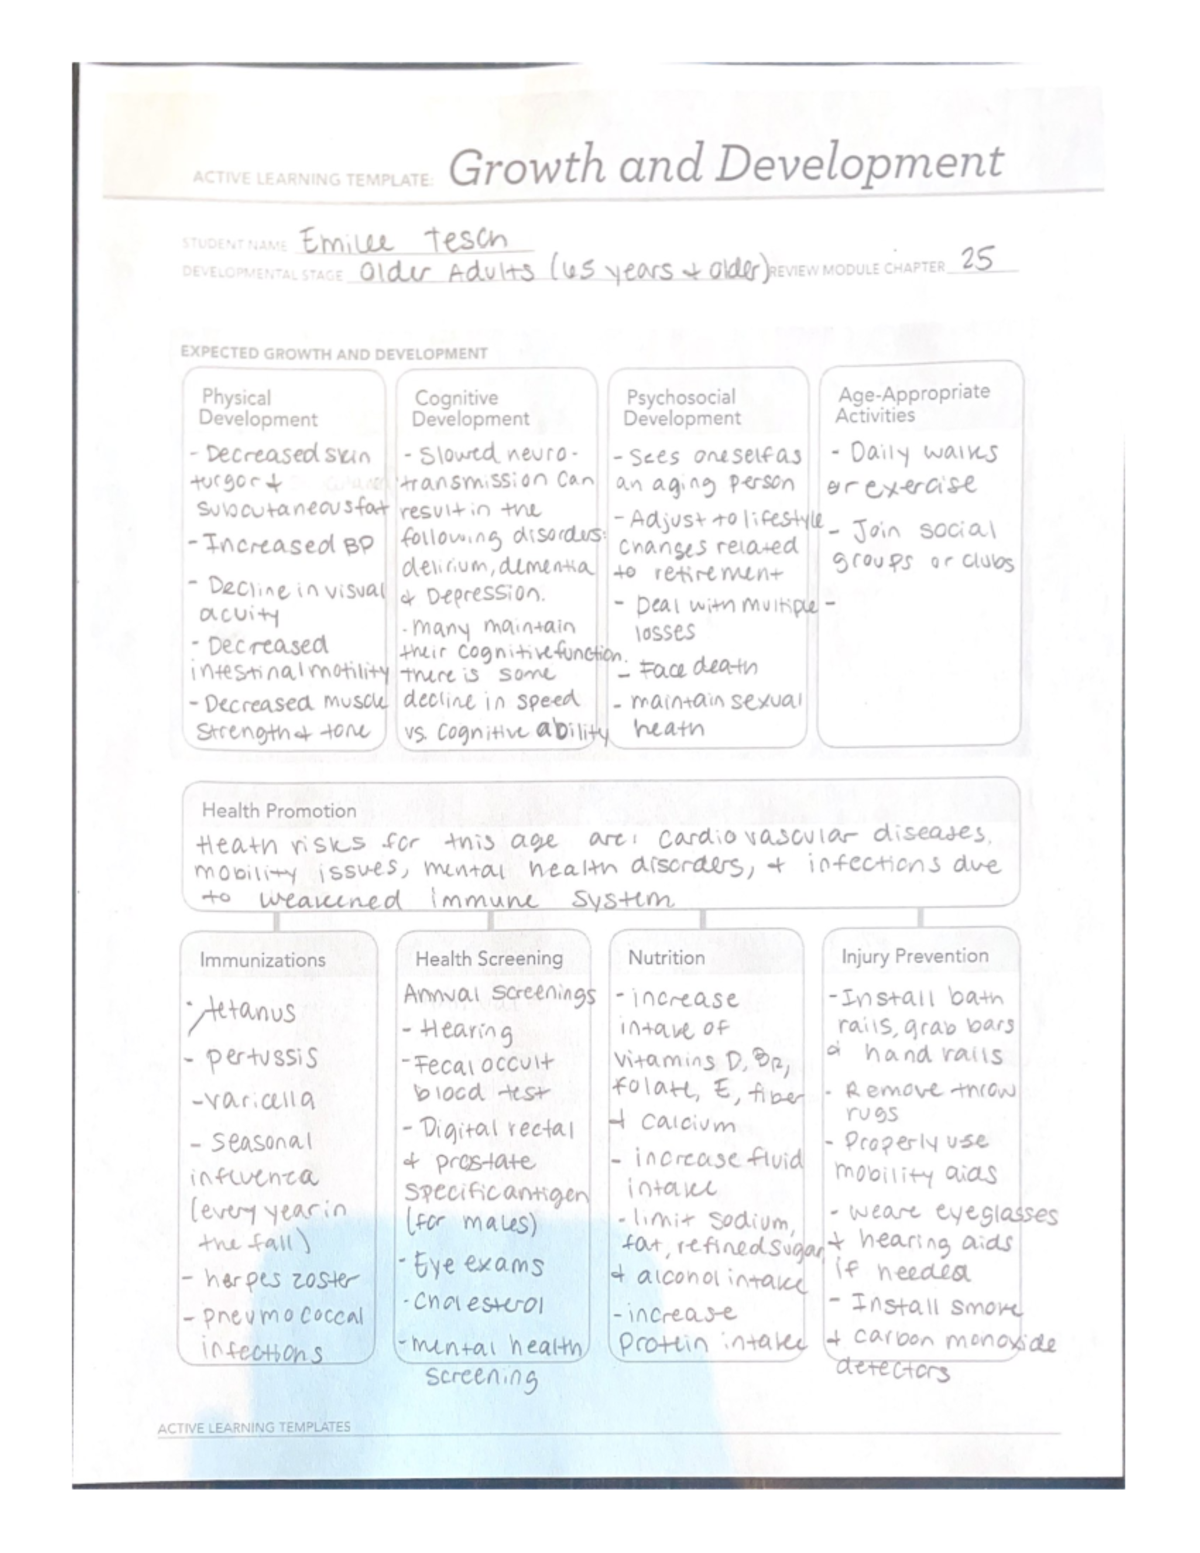 ACTIVE LEARNING TEMPLATE: Growth and Development
STUDENT NAME Emilee Tesch
DEVELOPMENTAL STAGE Older Adults (65 years + older) REVIEW MODULE CHAPTER 25
EXPECTED GROWTH AND DEVELOPMENT
Physical
Development
- Decreased skin
turgor +
subcutaneous fat
- Increased BP
- Decline in visual
acuity
- Decreased
intestinal motility
- Decreased muscle
strength + tone
Cognitive
Development
- Slowed neuro-
transmission can
result in the
following disorders:
delirium, dementia
+ Depression.
- many maintain
their cognitive function.
there is some
decline in speed
vs. cognitive ability
Psychosocial
Development
- Sees oneself as
an aging person
- Adjust to lifestyle
changes related
to retirement
- Deal with multiple
losses
- Face death
- maintain sexual
heath
Age-Appropriate
Activities
- Daily walks
or exercise
- Join social
groups or clubs
-
Health Promotion
Heath risks for this age are: cardiovascular diseases,
mobility issues, mental health disorders, + infections due
to weakened immune system
Immunizations
- tetanus
- pertussis
- varicella
- seasonal
influenza
(every year in
the fall)
- herpes zoster
- pneumococcal
infections
Health Screening
Annual screenings
- Hearing
- Fecal occult
blood test
- Digital rectal
+ prostate
specific antigen
(for males)
- Eye exams
- Cholesterol
- mental health
screening
Nutrition
- increase
intake of
vitamins D, B12,
folate, E, fiber
+ calcium
- increase fluid
intake
- limit sodium,
fat, refined sugar
+ alcohol intake
- increase
protein intake
Injury Prevention
- Install bath
rails, grab bars
+ hand rails
- Remove throw
rugs
- Properly use
mobility aids
- weare eyeglasses
+ hearing aids
if needed
- Install smoke
+ carbon monoxide
detectors
ACTIVE LEARNING TEMPLATES